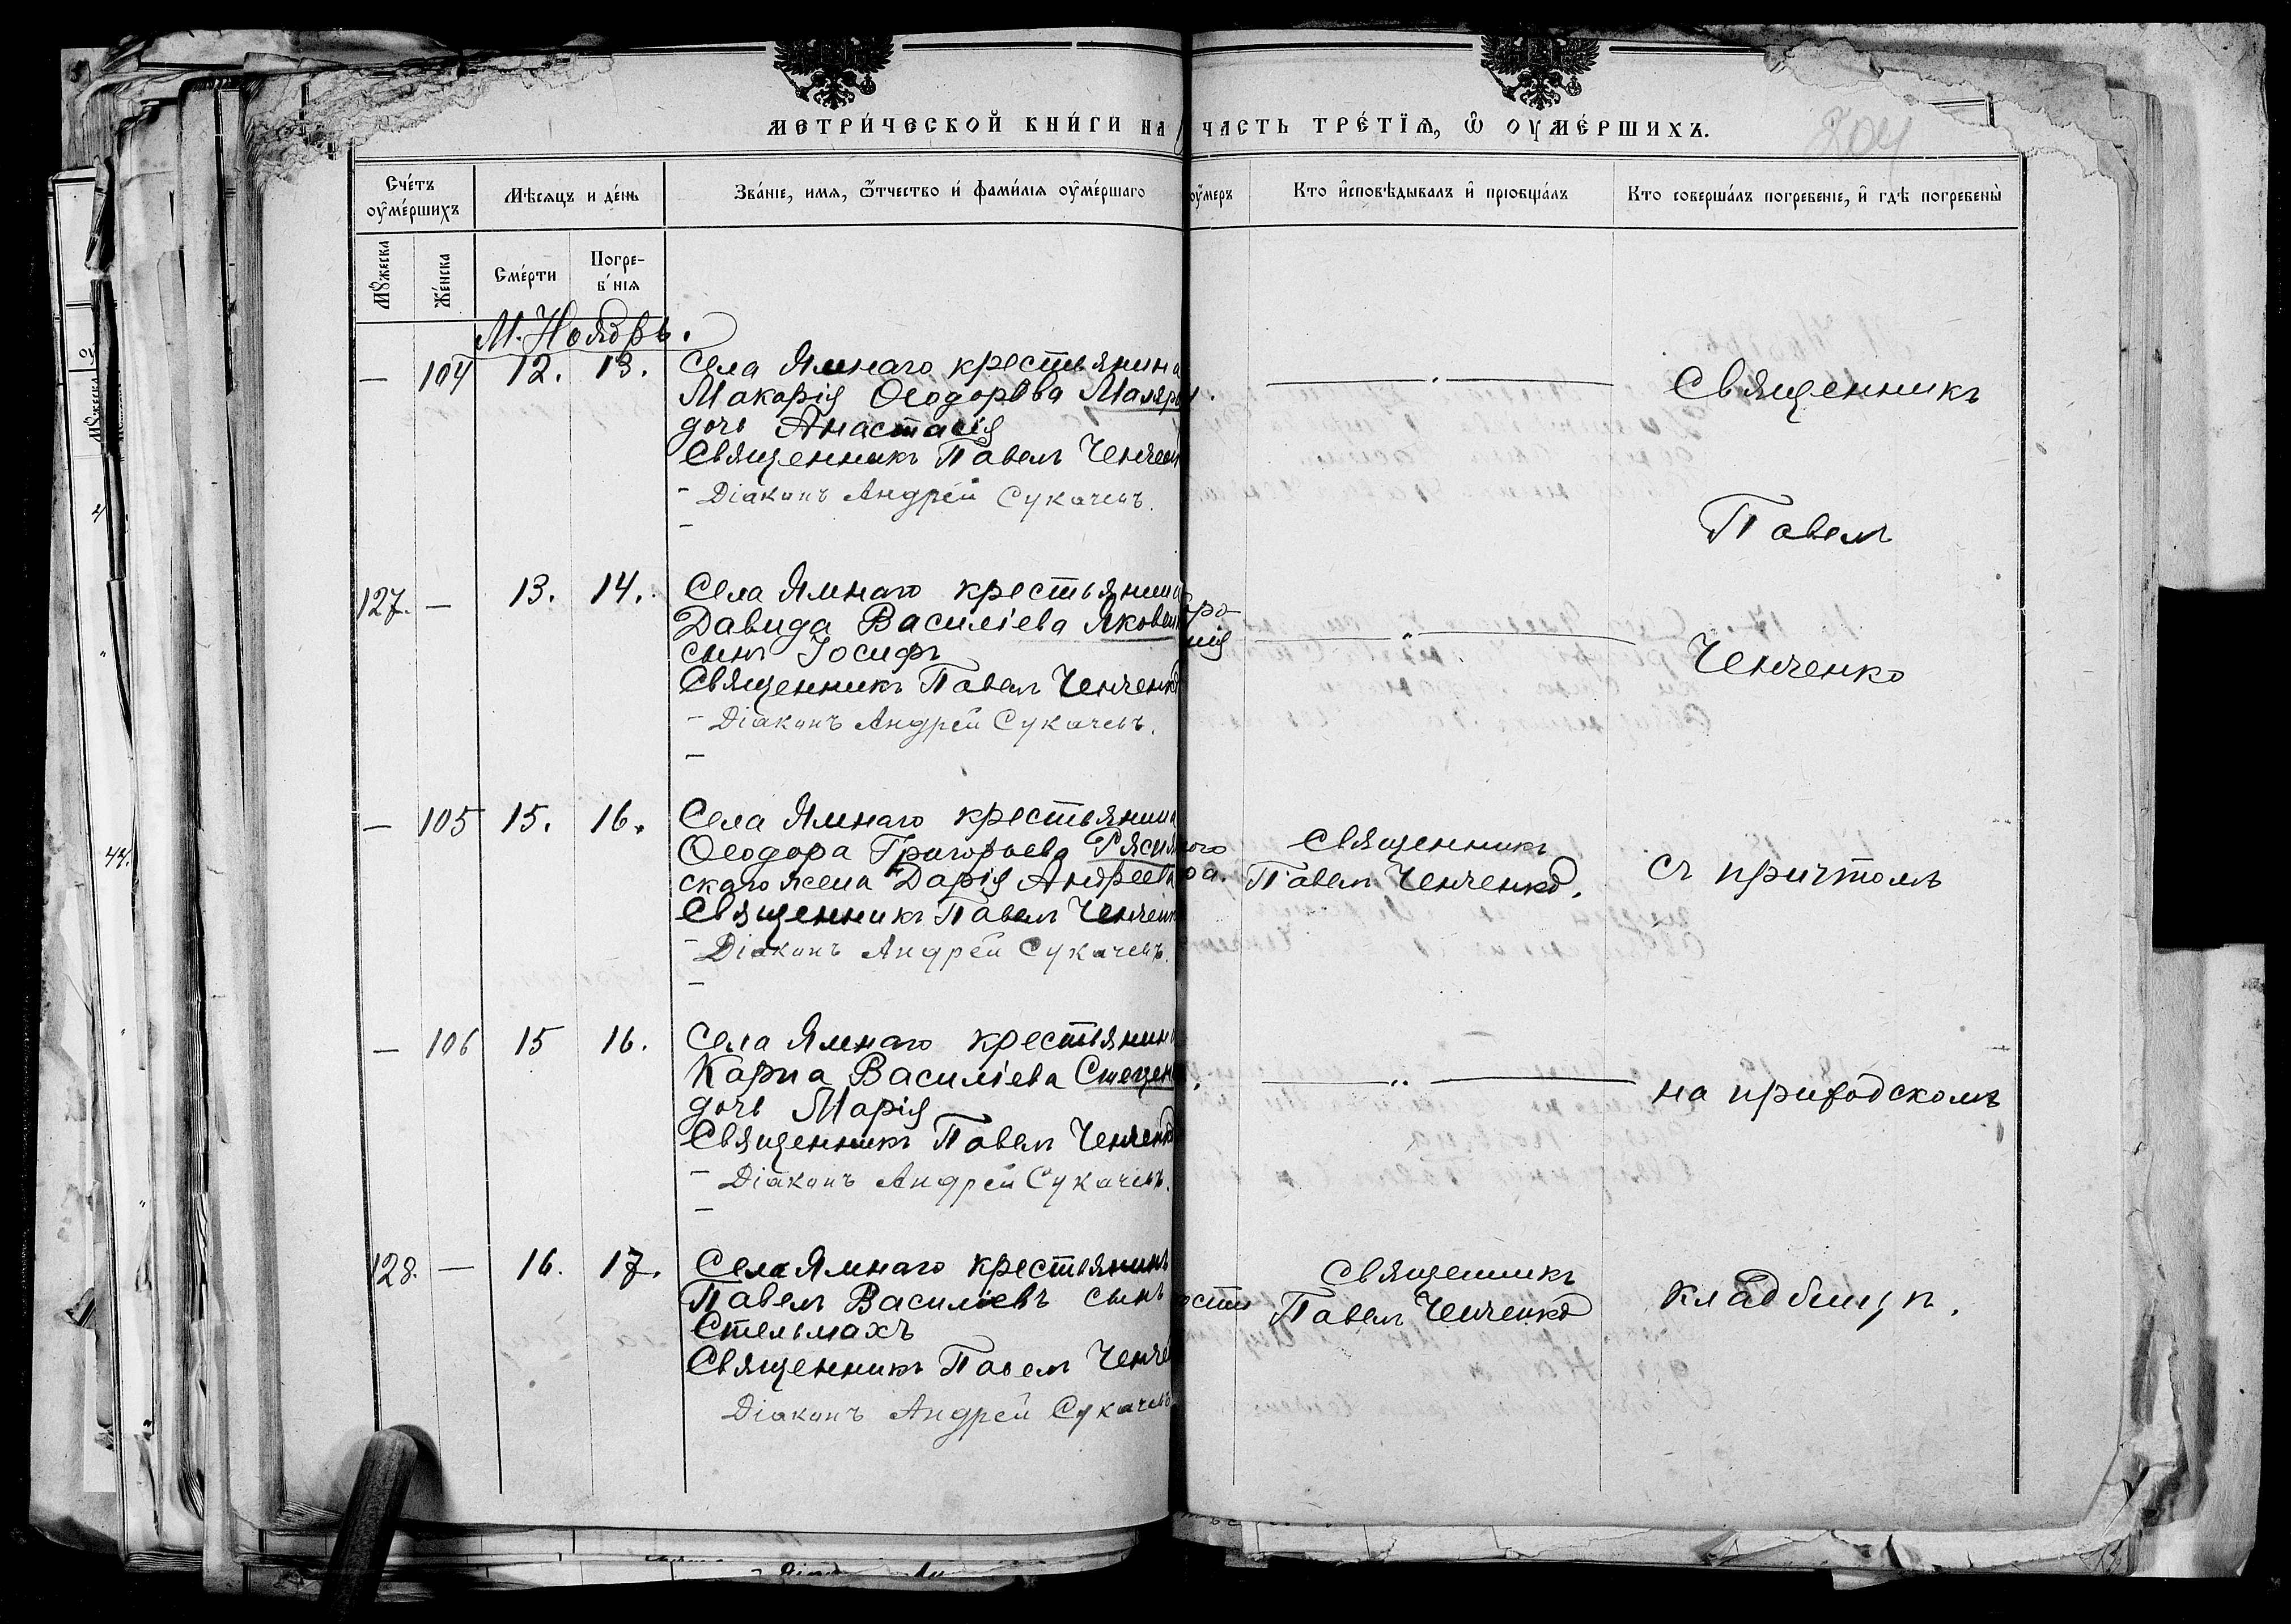 МЕТРИ́ЧЕСКОЙ КНИ́ГИ НА
ЧАСТЬ ТРЕ́ТЇѦ, Ѿ ОУМЕ́РШИХЪ.
Сче́тъ оумє́ршихъ
Мѣсяцъ и де́нь
Зва́ніе, имя, ѿтчество и́ фами́лїѧ оумє́ршаго
оумеръ
Кто и҆сповѣ́дывалъ и҆ прїобща́лъ
Кто соверша́лъ погребе́нїе, и҆ гдѣ̀ погребены̀
Мꙋжеска
Же́нска
Сме́рти
Погре-
б нїѧ
М. Ноябрь.
— 104 12. 13. Села Ямнаго крестьянина
Макарія Ѳеодорова Маляр
дочь Анастасія
Священникъ Павелъ Ченчен
- Діаконъ Андрей Сукачевъ.
Священникъ
Павелъ
127. — 13. 14. Села Ямнаго крестьянина
Давида Василіева Яковен
сынъ Іосифъ
Священникъ Павелъ Ченченко
- Діаконъ Андрей Сукачевъ.
Ченченко
— 105 15. 16. Села Ямнаго крестьянина
Ѳеодора Григорьева Рясня
скаго жена Дарія Андреева
Священникъ Павелъ Ченченк
- Діаконъ Андрей Сукачевъ.
Священникъ
Павелъ Ченченко.
съ причтомъ
— 106 15 16. Села Ямнаго крестьянина
Карпа Василіева Стецен
дочь Марія
Священникъ Павелъ Ченченко
- Діаконъ Андрей Сукачевъ.
на приходскомъ
128. — 16. 17. Села Ямнаго крестьянинъ
Павелъ Василіевъ сынъ
Стельмахъ
Священникъ Павелъ Ченче
Діаконъ Андрей Сукачевъ
Священникъ
Павелъ Ченченко
кладбищѣ.